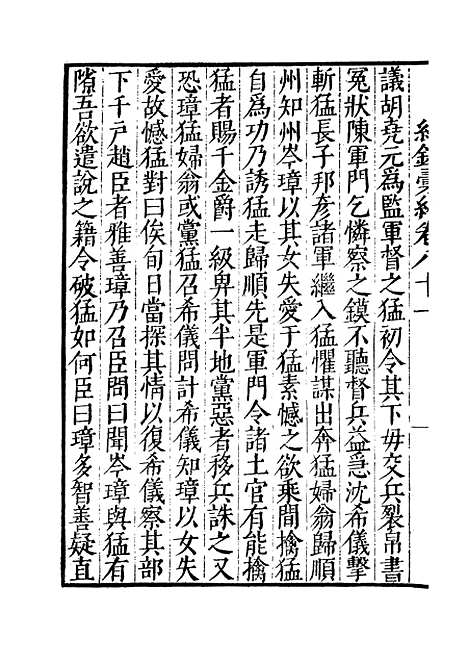 紀錄彙編卷八十一
議胡堯元爲監軍督之猛初令其下毋交兵裂帛書
冤狀陳軍門乞憐察之鏌不聽督兵益急沈希儀擊
斬猛長子邦彥諸軍繼入猛懼謀出奔猛婦翁歸順
州知州岑璋以其女失愛于猛素憾之欲乘間擒猛
自爲功乃誘猛走歸順先是軍門令諸土官有能擒
猛者賜千金爵一級畀其半地黨惡者移兵誅之又
恐璋猛婦翁或黨猛召希儀問計希儀知璋以女失
愛故憾猛對曰俟旬日當探其情以復希儀察其部
下千戶趙臣者雅善璋乃召臣問曰聞岑璋與猛有
隙吾欲遣說之籍令破猛如何臣曰璋多智善疑直